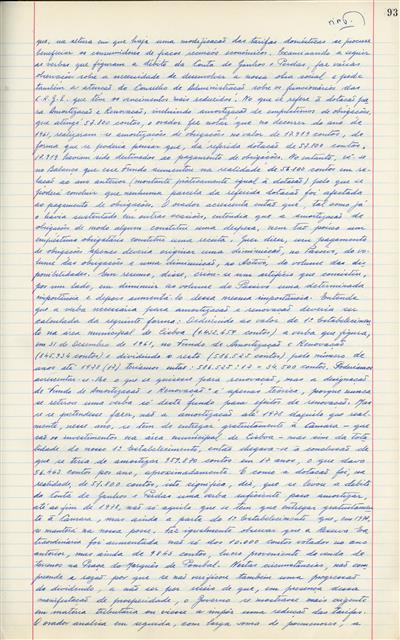 93
que, na altura em que haja uma modificação das tarifas domésticas se procure
beneficiar os consumidores de fracos recursos económicos. Examinando a seguir
as verbas que figuram a débito da Conta de Ganhos e Perdas, faz várias
observações sobre a necessidade de desenvolver a nossa obra social e pede
também a atenção do Conselho de Administração sobre os funcionários das
C.R.G.E. que têm os vencimentos mais reduzidos. No que se refere à dotação para
Amortização e Renovação, incluindo amortização de empréstimos de obrigações,
que atingi 57.800 contos, o orador fez notar que no decorrer do ano de
1961, realizaram-se amortizações de obrigações no valor de contos, de
forma que se poderia pensar que, da referida dotação de 57.800 contos,
haviam sido destinados ao pagamento de obrigações. No entanto, vê-se
no Balanço que esse Fundo aumentou na realidade de contos em re-
lação ao ano anterior (montante praticamente igual à dotação) pelo que se
poderá concluir que nenhuma parcela da referida dotação foi afectada
ao pagamento de obrigações. O orador acrescenta então que, tal como já
o havia sustentado em outras ocasiões, entendia que a amortização de
obrigações de modo algum constitui uma despesa, nem tão pouco um
empréstimo obrigatário constitui uma receita. Quer dizer, um pagamento
de obrigações apenas deveria originar uma diminuição, no Passivo, do vo-
lume das obrigações e uma diminuição, no Activo, do volume das dis-
ponibilidades. Em resumo, disse, criou-se um artifício que consistiu,
por um lado, em diminuir no volume do Passivo uma determinada
importância e depois aumentá-lo dessa mesma importância. Entende
que a verba necessária para amortização e renovação deveria ser
calculada da seguinte forma: Deduzindo ao valor do 1º Estabelecimen-
to na área municipal de Lisboa ( contos) a verba que figura,
em 31 de Dezembro de 1961, no Fundo de Amortização e Renovação
( contos) e dividindo o resto ( contos) pelo número de
anos até 1978 (17) teríamos então: : 17 = 34.500 contos. Poderíamos
acrescentar-se-lhe o que se quisesse para renovação, mas a designação
de Fundo de Amortização e Renovação é apenas teórica, porque nunca
se retirou uma verba só deste fundo para efeitos de renovação. Mas
se se pretendesse fazer, não a amortização até 1978 daquilo que real-
mente, nesse ano, se tem de entregar gratuitamente à Câmara - que
são os investimentos na área municipal de Lisboa - mas sim da tota-
lidade do nosso 1º Estabelecimento, então chegava-se à conclusão de
que se teria de amortizar contos em 17 anos, o que daria
contos por ano, aproximadamente. E como a dotação foi, na
realidade, de 57.800 contos, isto significa, diz, que se levou a débito
da Conta de Ganhos e Perdas uma verba suficiente para amortizar,
até ao fim de 1978, não só aquilo que se tem que entregar gratuitamen-
te à Câmara, mas ainda a parte do 1º Estabelecimento que, em 1978,
se mantém na nossa posse. Fez igualmente observar que a Reserva Ex-
traordinária foi aumentada não só dos 10.000 contos votados no ano
anterior, mas ainda de contos, lucro proveniente da venda de
terrenos na Praça do Marquês de Pombal. Nestas circunstâncias, não com-
preende a razão por que se não verificou também uma progressão
do dividendo, a não ser por receio de que, em presença dessa
manifestação de prosperidade, o Governo se mostrasse mais exigente
em matéria tributária ou viesse a impôr uma redução das tarifas.
O orador analisa em seguida, com larga soma de pormenores, a